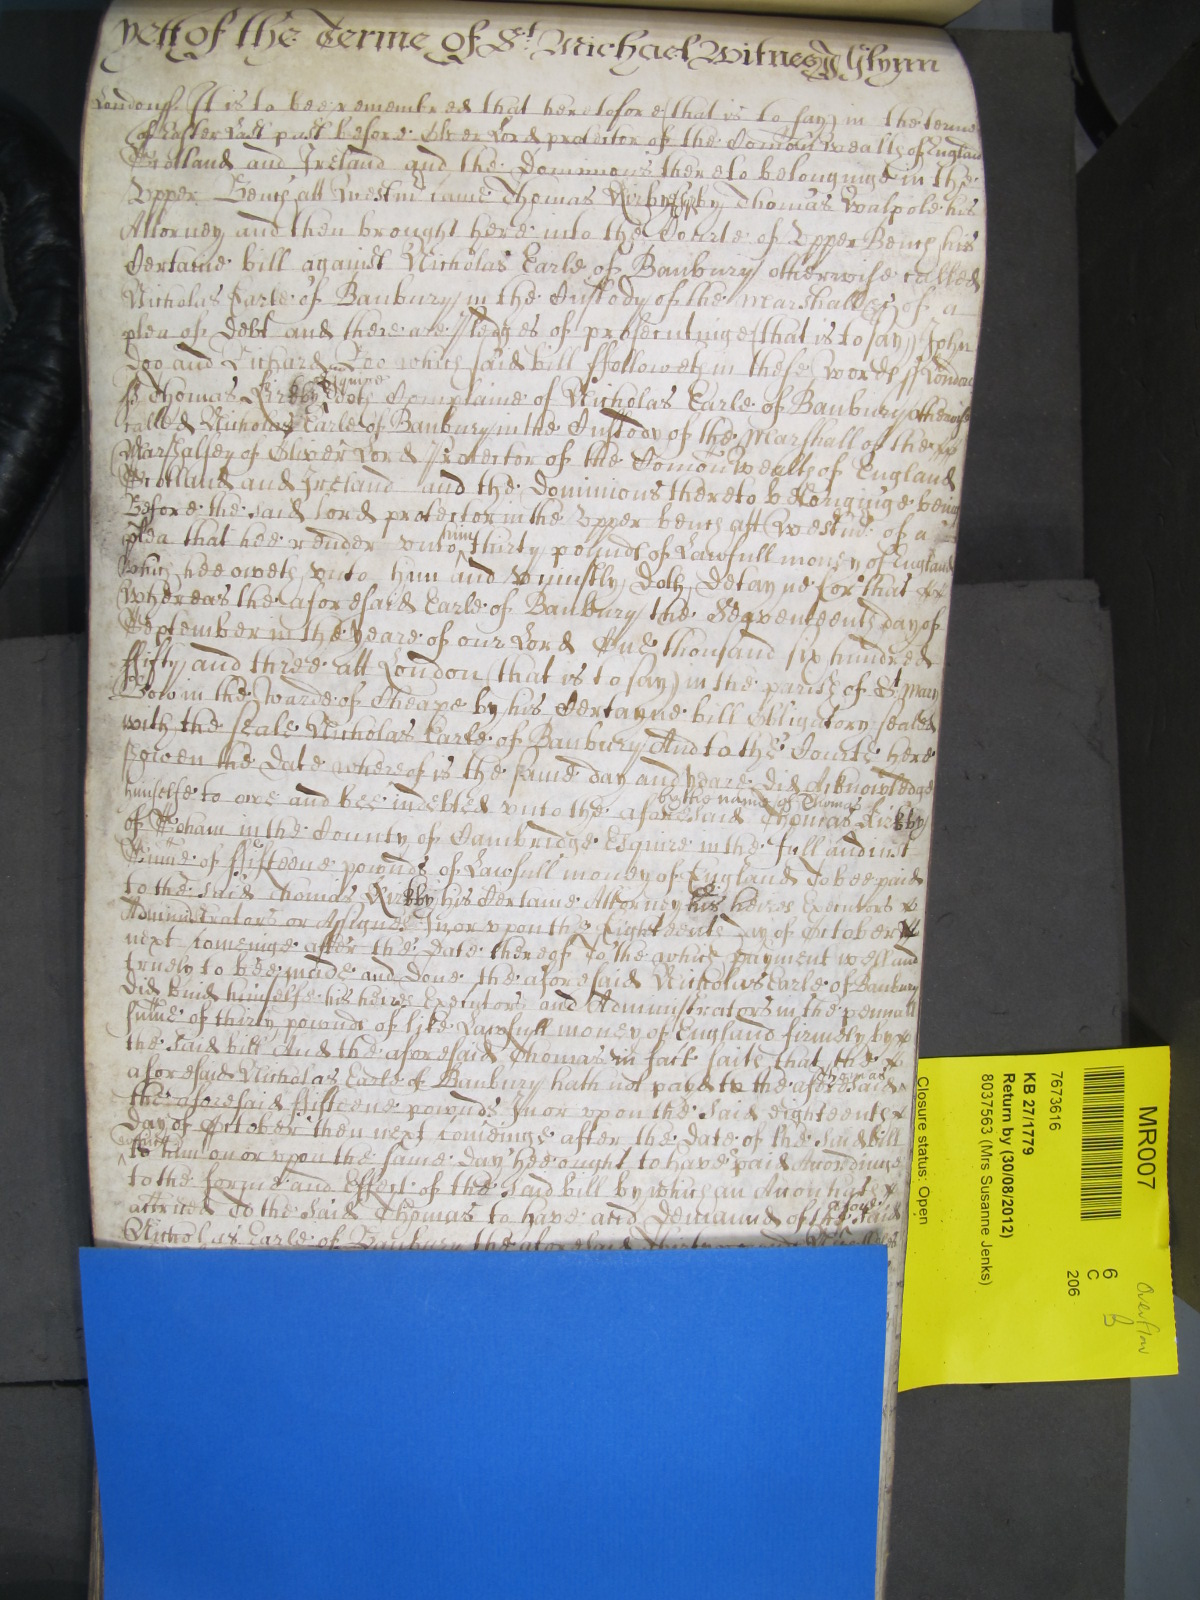 yett of the Terme of St Michael Witness J Glynn
London ss. It is to bee remembred that heretofore (that is to say) in the terme
of Easter Last past before Oliver Lord protector of the Comonwealth of England
Scotland and Ireland and the Dominions thereto belonginge in the
Upper Bench att Westm came Thomas Kirkby by Thomas Walpole his
Attorney and then brought here into the Courte of Upper Bench his
Certaine bill against Nicholas Earle of Banbury otherwise called
Nicholas Earle of Banbury in the Custody of the Marshall &c of a
plea of Debt and there are pledges of prosecutinge (that is to say) John
Doo and Richard Roo which said bill ffolloweth in these words ss London
ss Thomas Kirkby Esquire doth Complaine of Nicholas Earle of Banbury otherwise
called Nicholas Earle of Banbury in the Custody of the Marshall of the
Marshalsey of Oliver Lord Protector of the Comonwealth of England
Scotland and Ireland and the Dominions thereto belonginge being
Before the said Lord protector in the Upper bench att Westm of a
plea that hee render unto him thirty pounds of Lawfull money of England
which hee oweth unto him and Uniustly doth detayne for that
Whereas the aforesaid Earle of Banbury the Seaventeenth day of
September in the yeare of our Lord One thousand six hundred
ffifty and three att London (that is to say) in the parish of St Mary
Bow in the Warde of Cheape by his Certayne bill Obligatory sealed
with the seale Nicholas Earle of Banbury And to the Courte here
shewen the Date whereof is the same day and yeare did Acknowledge
himselfe to owe and bee indebted unto the aforesaid Thomas Kirkby by the name of Thomas Kirkby
of in the County of Cambridge Esquire in the full and iust
Summe of ffifteene pownds of Lawfull money of England To bee paid
to the said Thomas Kirkby his Certaine Attorney his heires Executors
Administrators or Assignes In or upon the Eighteenth day of October
next comeinge after the Date thereof To the which payment well and
truely to bee made and done the aforesaid Nicholas Earle of Banbury
did bind himselfe his heires Executors and Administrators in the pennall
summe of thirty pownds of like Lawfull money of England firmely by
the said bill And the aforesaid Thomas in fact saith that the
aforesaid Nicholas Earle of Banbury hath not payd to the aforesaid Thomas
the aforesaid ffifteene pownds In or upon the said eighteenth
day of October then next comeinge after the date of the said bill
to him on or upon the same day hee ought to have paid Accordinge
to the forme and Effect of the said bill by which an Accon hath
accrued To the said Thomas to have and Demannd of the aforesaid
Nicholas Earle of Banbury the aforesaid thirty
MR007
7673616
KB 27/1779
Return by (30/08/2012)
8037563 (Mrs Susanne Jenks)
Closure status: Open
6
C
206
Overflow
B